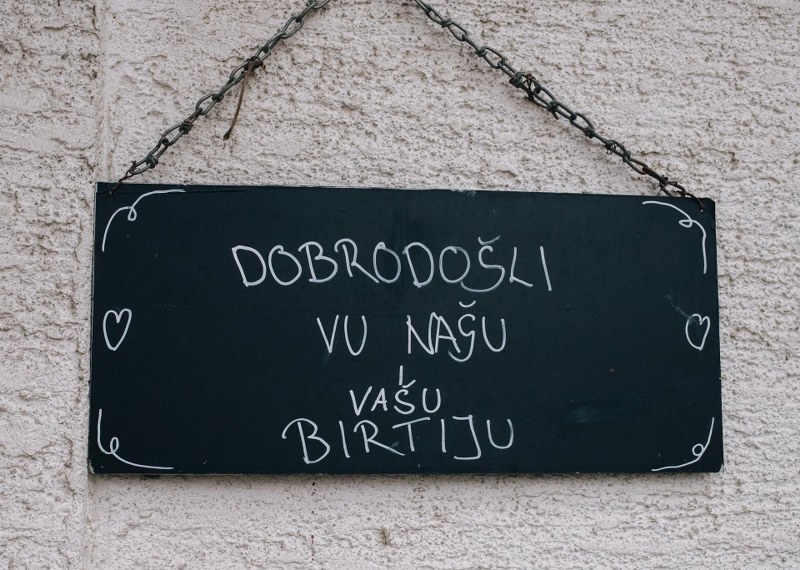 DOBRODOŠLI
VU NAŠU
I
VAŠU
BIRTIJU